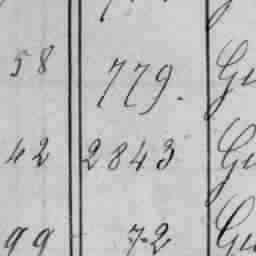 58 779. Gu
42 2843 Gu
99 72 Gu